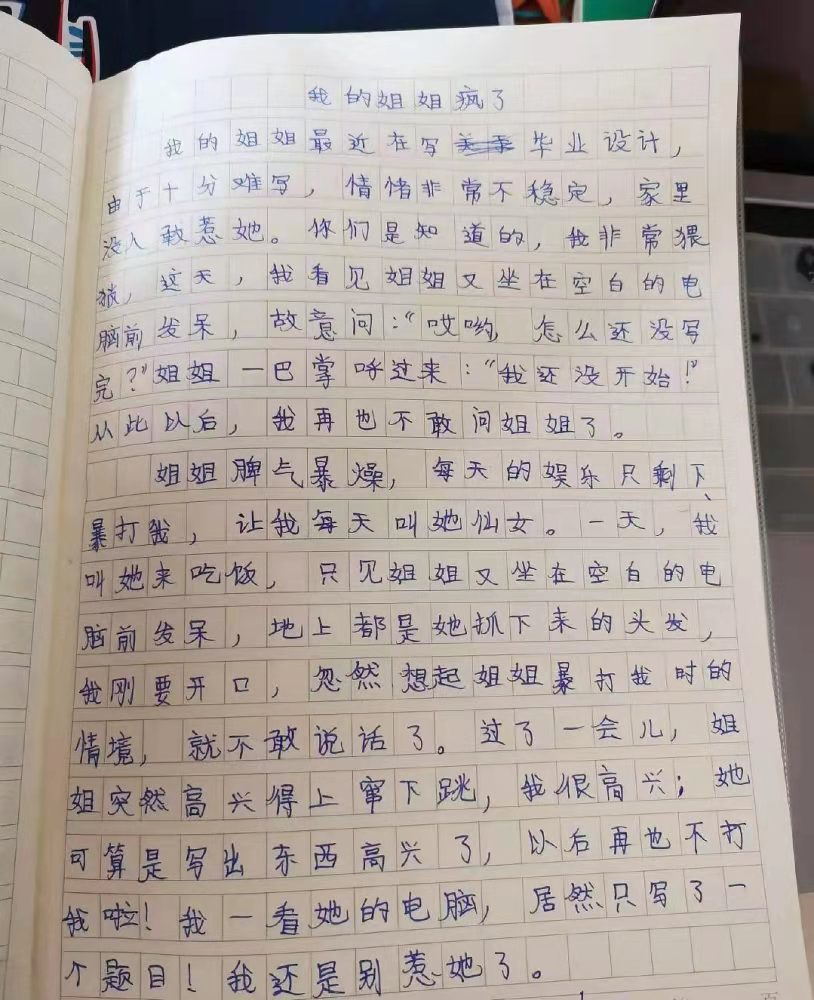 我的姐姐疯了
我的姐姐最近在写毕业设计，
由于十分难写，情绪非常不稳定，家里
没人敢惹她。你们是知道的，我非常猥
猿，这天，我看见姐姐又坐在空白的电
脑前发呆，故意问：“哎哟，怎么还没写
完？”姐姐一巴掌呼过来：“我还没开始！”
从此以后，我再也不敢问姐姐了。
姐姐脾气暴燥，每天的娱乐只剩下、
暴打我，让我每天叫她仙女。一天，我
叫她来吃饭，只见姐姐又坐在空白的电
脑前发呆，地上都是她抓下来的头发，
我刚要开口，忽然想起姐姐暴打我时的
情境，就不敢说话了。过了一会儿，姐
姐突然高兴得上窜下跳，我很高兴；她
可算是写出东西高兴了，以后再也不打
我啦！我一看她的电脑，居然只写了一
个题目！我还是别惹她了。